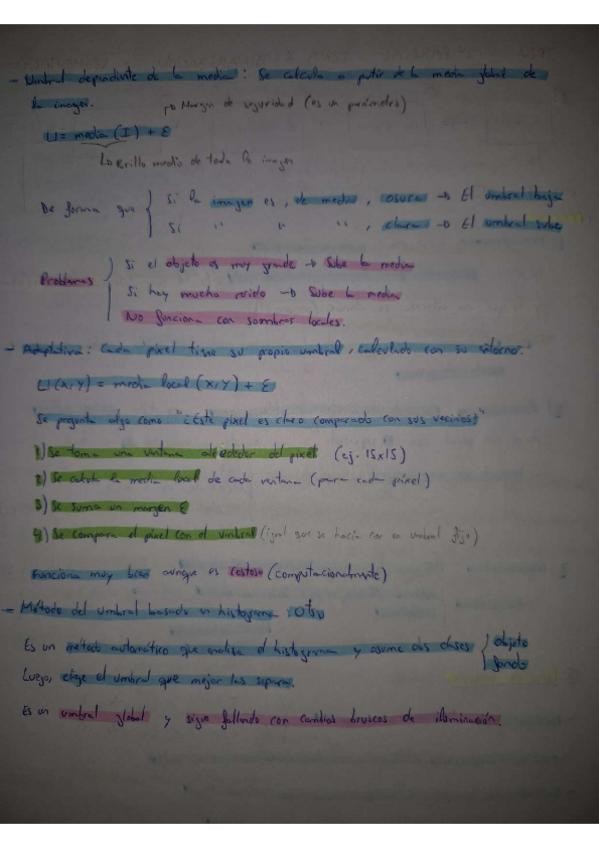 - Umbral dependiente de la media: Se calcula a partir de la media global de
la imagen.
↳ Margen de seguridad (es un parámetro)
U = media (I) + ε
↳ Brillo medio de toda la imagen
De forma que { Si la imagen es, de media, oscura → El umbral baja
Si " " ", clara → El umbral sube
Problemas { Si el objeto es muy grande → Sube la media
Si hay mucho ruido → Sube la media
No funciona con sombras locales.
- Adaptativa: Cada pixel tiene su propio umbral, calculado con su entorno.
U(x,y) = media local (x,y) + ε
Se pregunta algo como "¿Este pixel es claro comparado con sus vecinos?"
1) Se toma una ventana alrededor del pixel (ej. 15x15)
2) Se calcula la media local de cada ventana (para cada pixel)
3) Se suma un margen ε
4) Se compara el pixel con el umbral (igual que se hacía con un umbral fijo)
Funciona muy bien aunque es costoso (computacionalmente)
- Método del umbral basado en histograma: Otsu
Es un método automático que analiza el histograma y asume dos clases { objeto
fondo
Luego, elige el umbral que mejor las separa.
Es un umbral global y sigue fallando con cambios bruscos de iluminación.